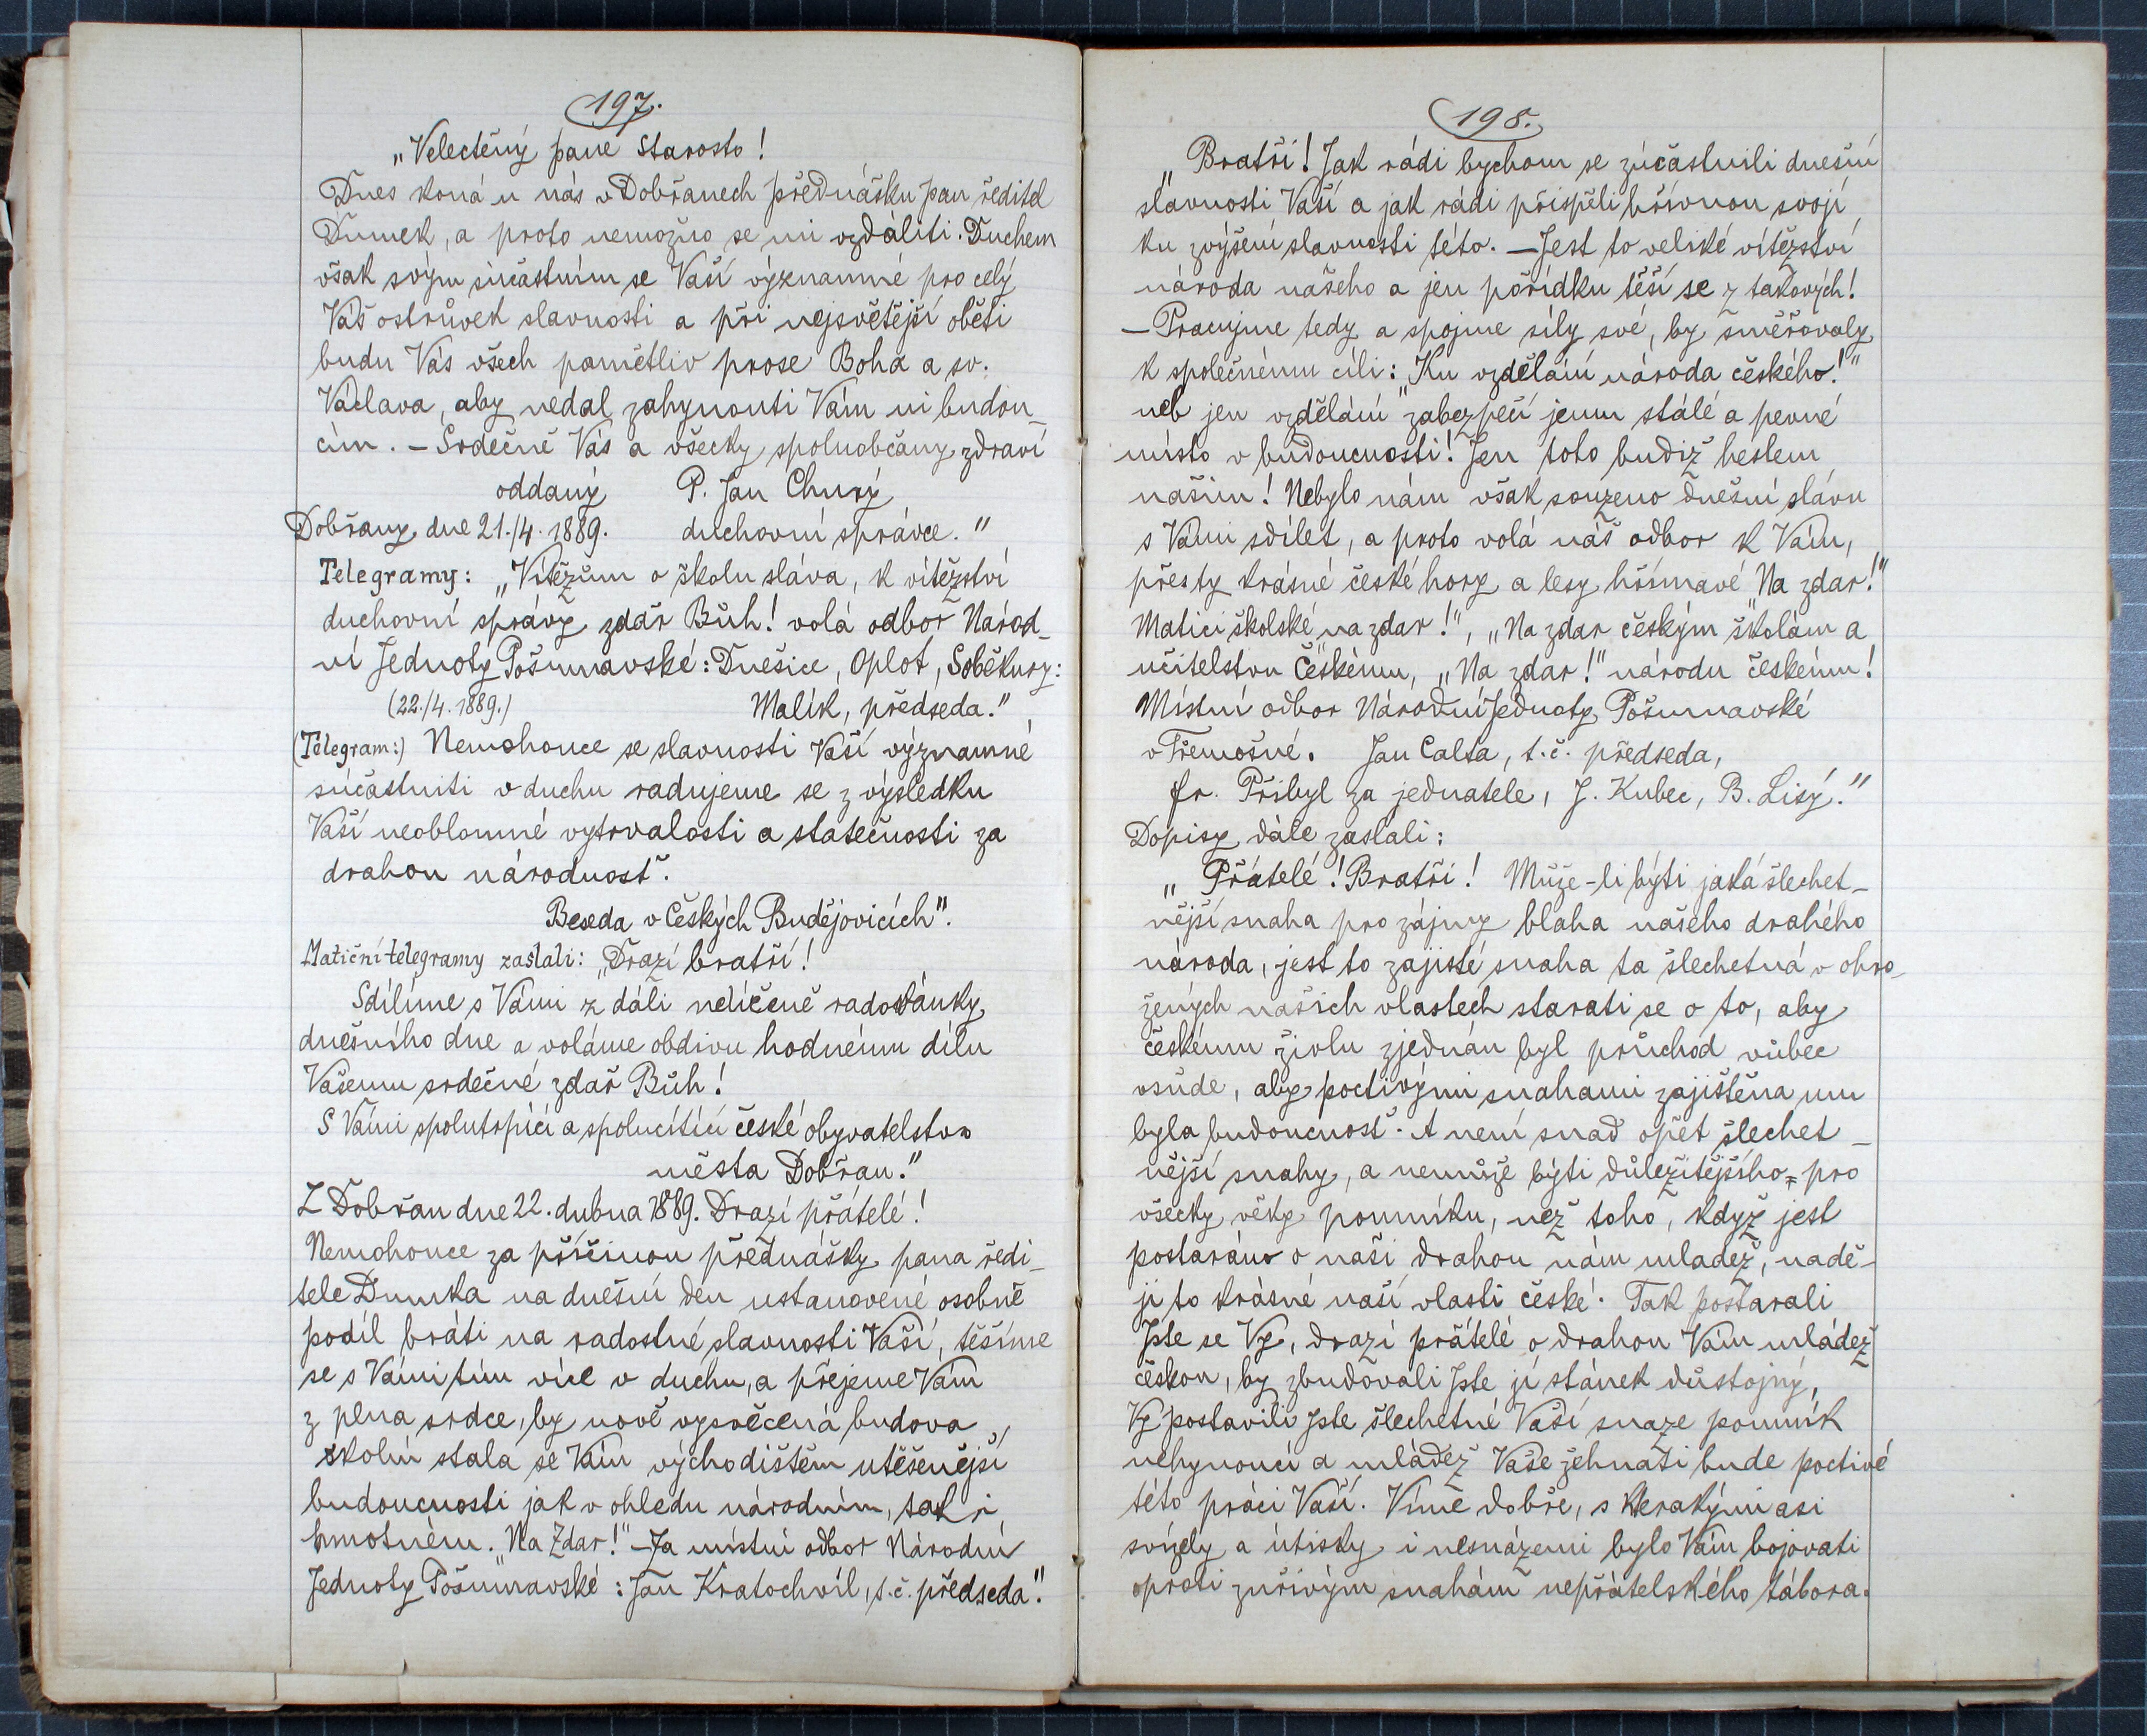 197.
„Velectěný pane Starosto!
Dnes koná u nás v Dobřanech přednášku pan ředitel
Dumek, a proto nemožno se mi vzdáliti. Duchem
však svým súčastním se Vaší významné pro celý
Váš ostrůvek slavnosti a při nejsvětější oběti
budu Vás všech pamětliv prose Boha a sv.
Václava, aby nedal zahynouti Vám ni budou-
cím. – Srdečně Vás a všecky spoluobčany zdraví
oddaný P. Jan Churý
Dobřany, dne 21./4. 1889. duchovní správce."
Telegramy: „Vítězům o školu sláva, k vítězství
duchovní správy zdař Bůh! volá odbor Národ-
ní Jednoty Pošumavské: Dnešice, Oplot, Soběkury:
(22./4. 1889.) Malík, předseda."
(Telegram:) Nemohouce se slavnosti Vaší významné
súčastniti v duchu radujeme se z výsledku
Vaší neoblomné vytrvalosti a statečnosti za
drahou národnost.
Beseda v Českých Budějovicích".
Matiční telegramy zaslali: „Drazí bratři!
Sdílíme s Vámi z dáli nelíčeně radovánky
dnešního dne a voláme obdivu hodnému dílu
Vašemu srdečné zdař Bůh!
S Vámi spolutrpící a spolucítící české obyvatelstvo
města Dobřan."
Z Dobřan dne 22. dubna 1889. Drazí přátelé!
Nemohouce za příčinou přednášky pana ředi-
tele Dumka na dnešní den ustanovené osobně
podíl bráti na radostné slavnosti Vaší, těšíme
se s Vámi tím více v duchu, a přejeme Vám
z plna srdce, by nově vysvěcená budova
školní stala se Vám východištěm utěšenější
budoucnosti jak v ohledu národním, tak i
hmotném. „Na Zdar!" – Za místní odbor Národní
Jednoty Pošumavské: Jan Kratochvíl, t.č. předseda".
198.
„Bratři! Jak rádi bychom se zúčastnili dnešní
slavnosti Vaší a jak rádi přispěli hřivnou svojí
ku zvýšení slavnosti této. – Jest to veliké vítězství
národa našeho a jen pořídku těší se z takových!
– Pracujme tedy a spojme síly své, by směřovaly
k společnému cíli: „Ku vzdělání národa českého!"
neb jen vzdělání zabezpečí jemu stálé a pevné
místo v budoucnosti! Jen toto budiž heslem
naším! Nebylo nám však souzeno dnešní slávu
s Vámi sdílet, a proto volá náš odbor k Vám,
přes ty krásné české hory a lesy hřímavé „Na zdar!"
Matici školské „na zdar!", „Na zdar českým školám a
učitelstvu Českému, „Na zdar!" národu českému!
Místní odbor Národní Jednoty Pošumavské
v Třemošné. Jan Calta, t.č. předseda,
fr. Přibyl za jednatele, J. Kubec, B. Lisý."
Dopisy dále zaslali:
„Přátelé! Bratři! Může-li býti jaká šlechet-
nější snaha pro zájmy blaha našeho drahého
národa, jest to zajisté snaha ta šlechetná v ohro-
žených našich vlastech starati se o to, aby
českému živlu zjednán byl průchod vůbec
všude, aby poctivými snahami zajištěna mu
byla budoucnost. A není snad opět šlechet-
nější snahy, a nemůže býti důležitějšího pro
všecky věky pomníku, než toho, když jest
postaráno o naši drahou nám mladež, nadě-
ji to krásné naší vlasti české. Tak postarali
Jste se Vy, drazí přátelé o drahou Vám mládež
českou, by zbudovali Jste jí stánek důstojný,
Vy postavili Jste šlechetné Vaší snaze pomník
nehynoucí a mládež Vaše žehnati bude poctivé
této práci Vaší. Víme dobře, s kterakými asi
svízely a útisky i nesnázemi bylo Vám bojovati
oproti zuřivým snahám nepřátelského tábora.